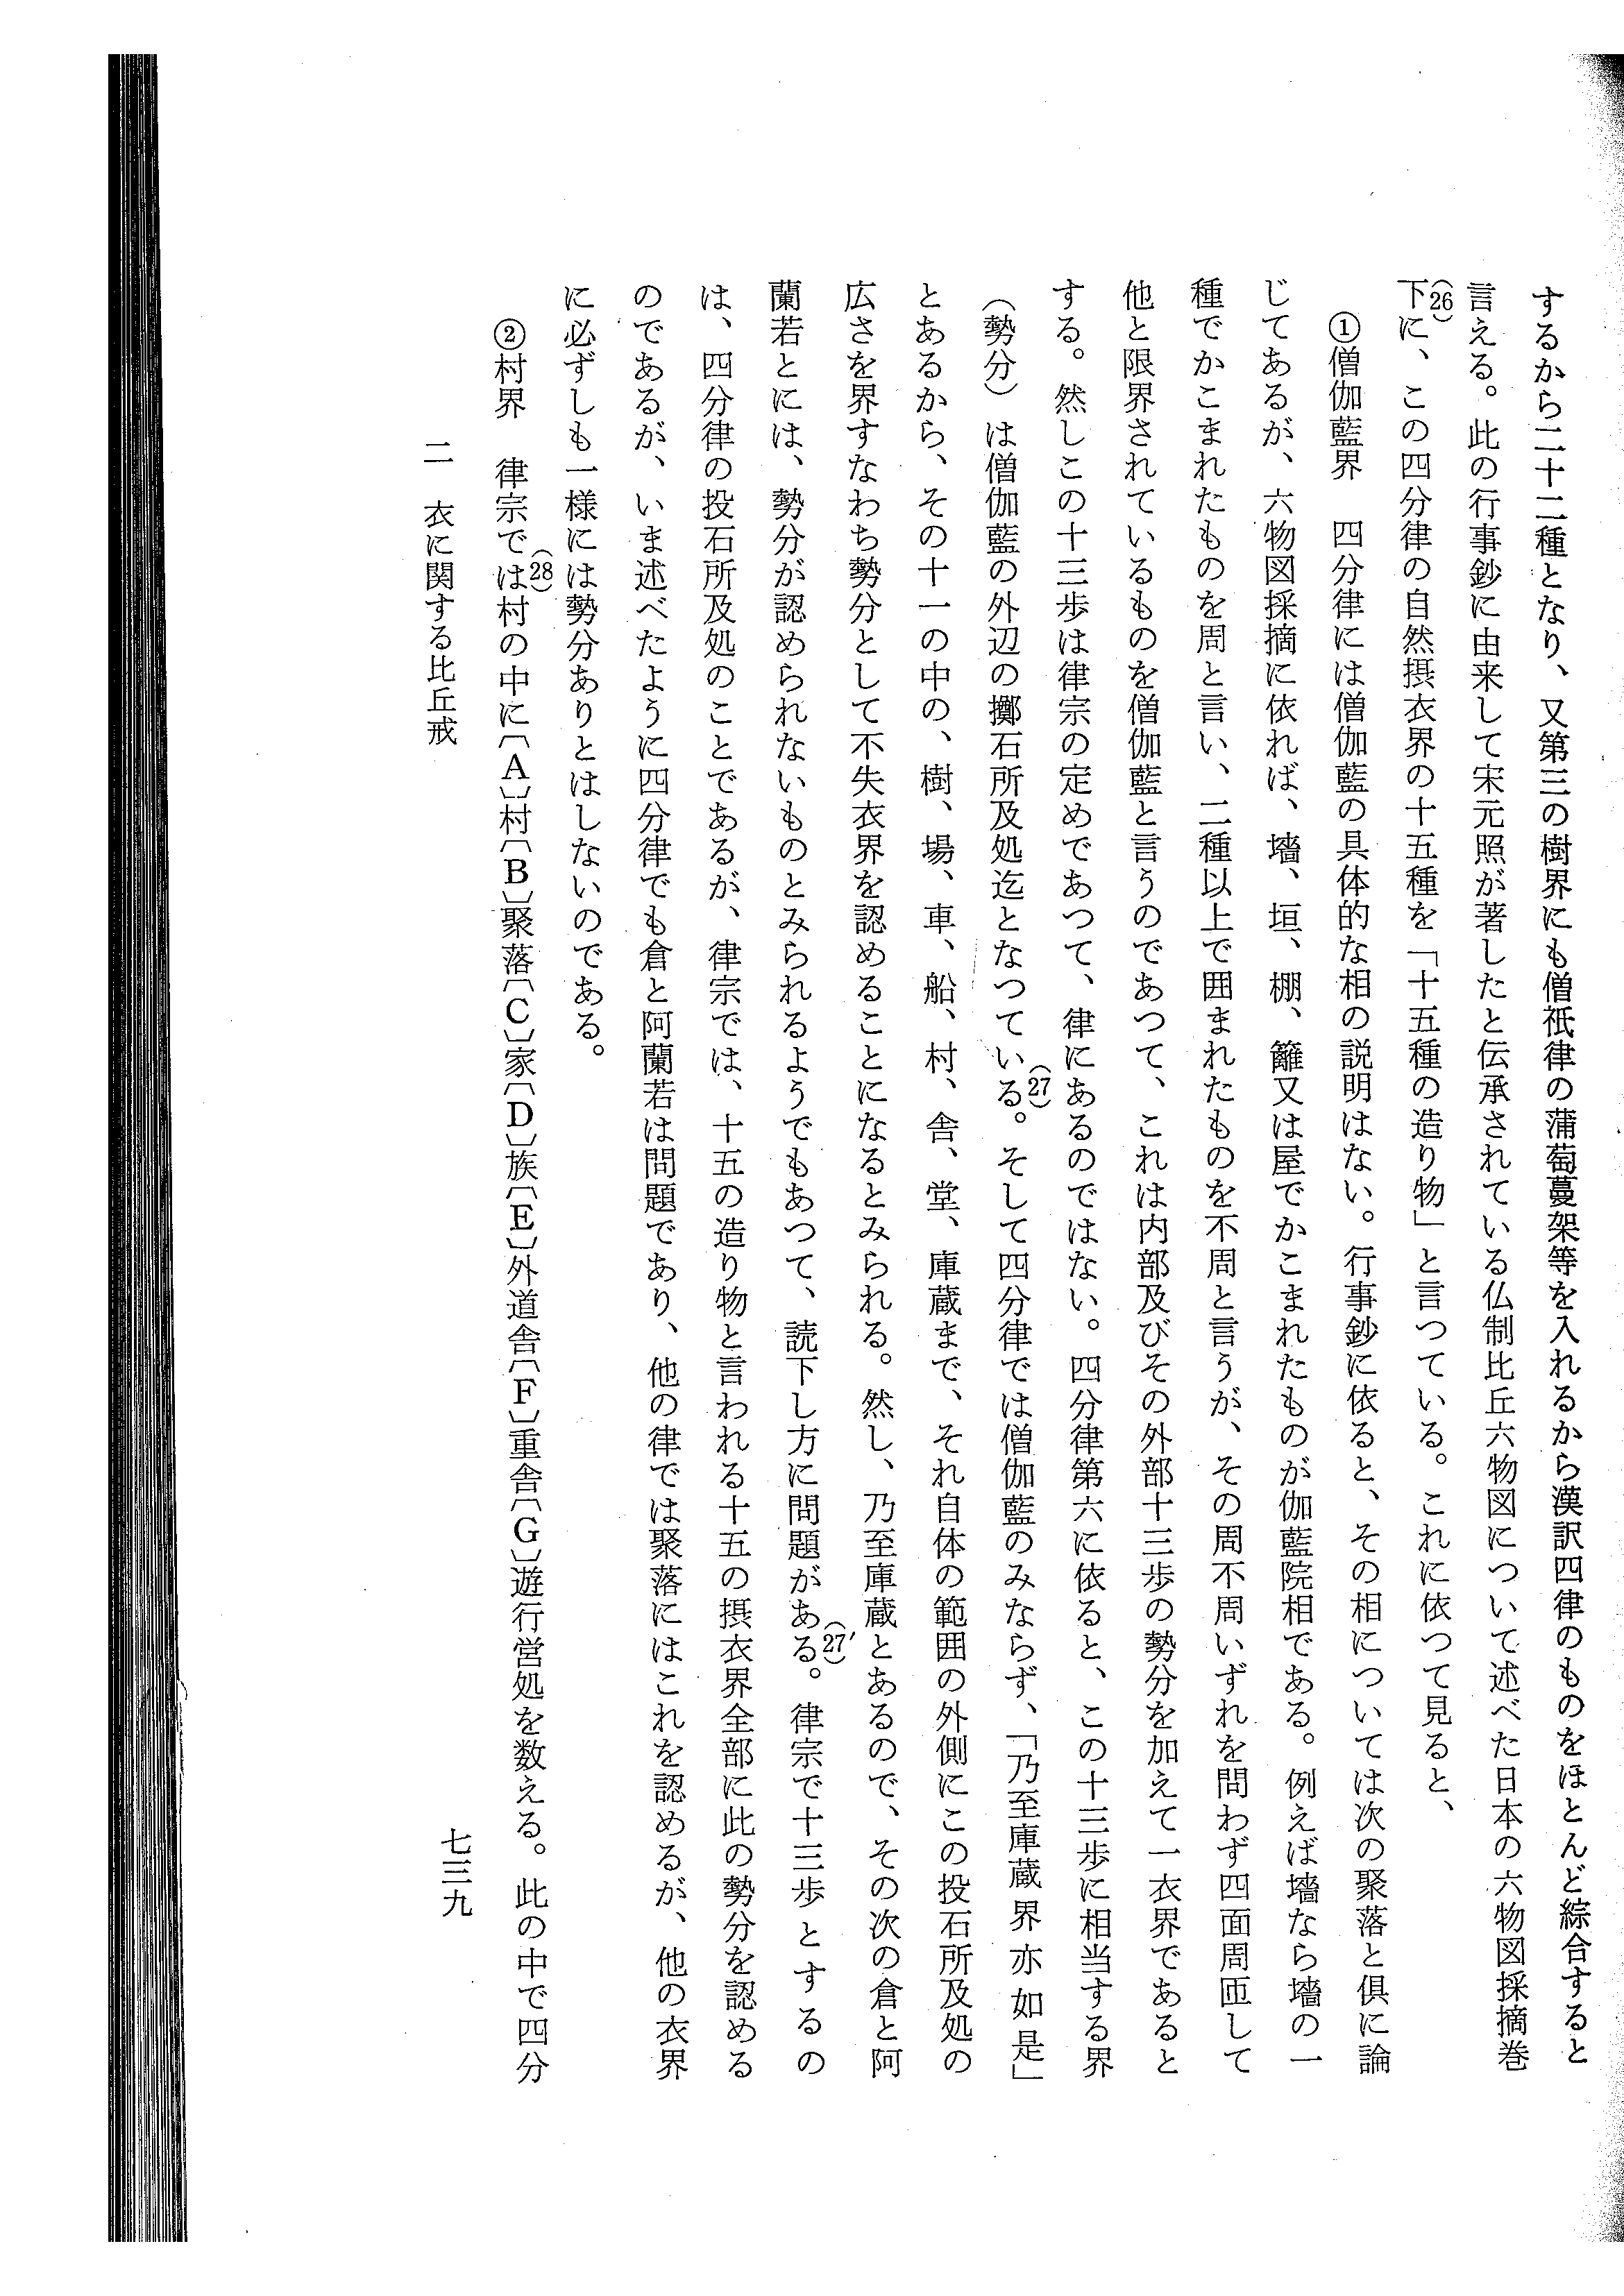 するから二十二種となり、又第三の樹界にも僧祇律の蒲萄蔓架等を入れるから漢訳四律のものをほとんど綜合すると
言える。此の行事鈔に由来して宋元照が著したと伝承されている仏制比丘六物図について述べた日本の六物図採摘巻
下(26)に、この四分律の自然摂衣界の十五種を「十五種の造り物」と言つている。これに依つて見ると、
①僧伽藍界　四分律には僧伽藍の具体的な相の説明はない。行事鈔に依ると、その相については次の聚落と倶に論
じてあるが、六物図採摘に依れば、墻、垣、棚、籬又は屋でかこまれたものが伽藍院相である。例えば墻なら墻の一
種でかこまれたものを周と言い、二種以上で囲まれたものを不周と言うが、その周不周いずれを問わず四面周匝して
他と限界されているものを僧伽藍と言うのであつて、これは内部及びその外部十三歩の勢分を加えて一衣界であると
する。然しこの十三歩は律宗の定めであつて、律にあるのではない。四分律第六に依ると、この十三歩に相当する界
(勢分)は僧伽藍の外辺の擲石所及処迄となつている(27)。そして四分律では僧伽藍のみならず、「乃至庫蔵界亦如是」
とあるから、その十一の中の、樹、場、車、船、村、舎、堂、庫蔵まで、それ自体の範囲の外側にこの投石所及処の
広さを界すなわち勢分として不失衣界を認めることになるとみられる。然し、乃至庫蔵とあるので、その次の倉と阿
蘭若とには、勢分が認められないものとみられるようでもあつて、読下し方に問題がある(27′)。律宗で十三歩とするの
は、四分律の投石所及処のことであるが、律宗では、十五の造り物と言われる十五の摂衣界全部に此の勢分を認める
のであるが、いま述べたように四分律でも倉と阿蘭若は問題であり、他の律では聚落にはこれを認めるが、他の衣界
に必ずしも一様には勢分ありとはしないのである。
②村界　律宗では(28)村の中に〔A〕村〔B〕聚落〔C〕家〔D〕族〔E〕外道舎〔F〕重舎〔G〕遊行営処を数える。此の中で四分
二　衣に関する比丘戒
七三九